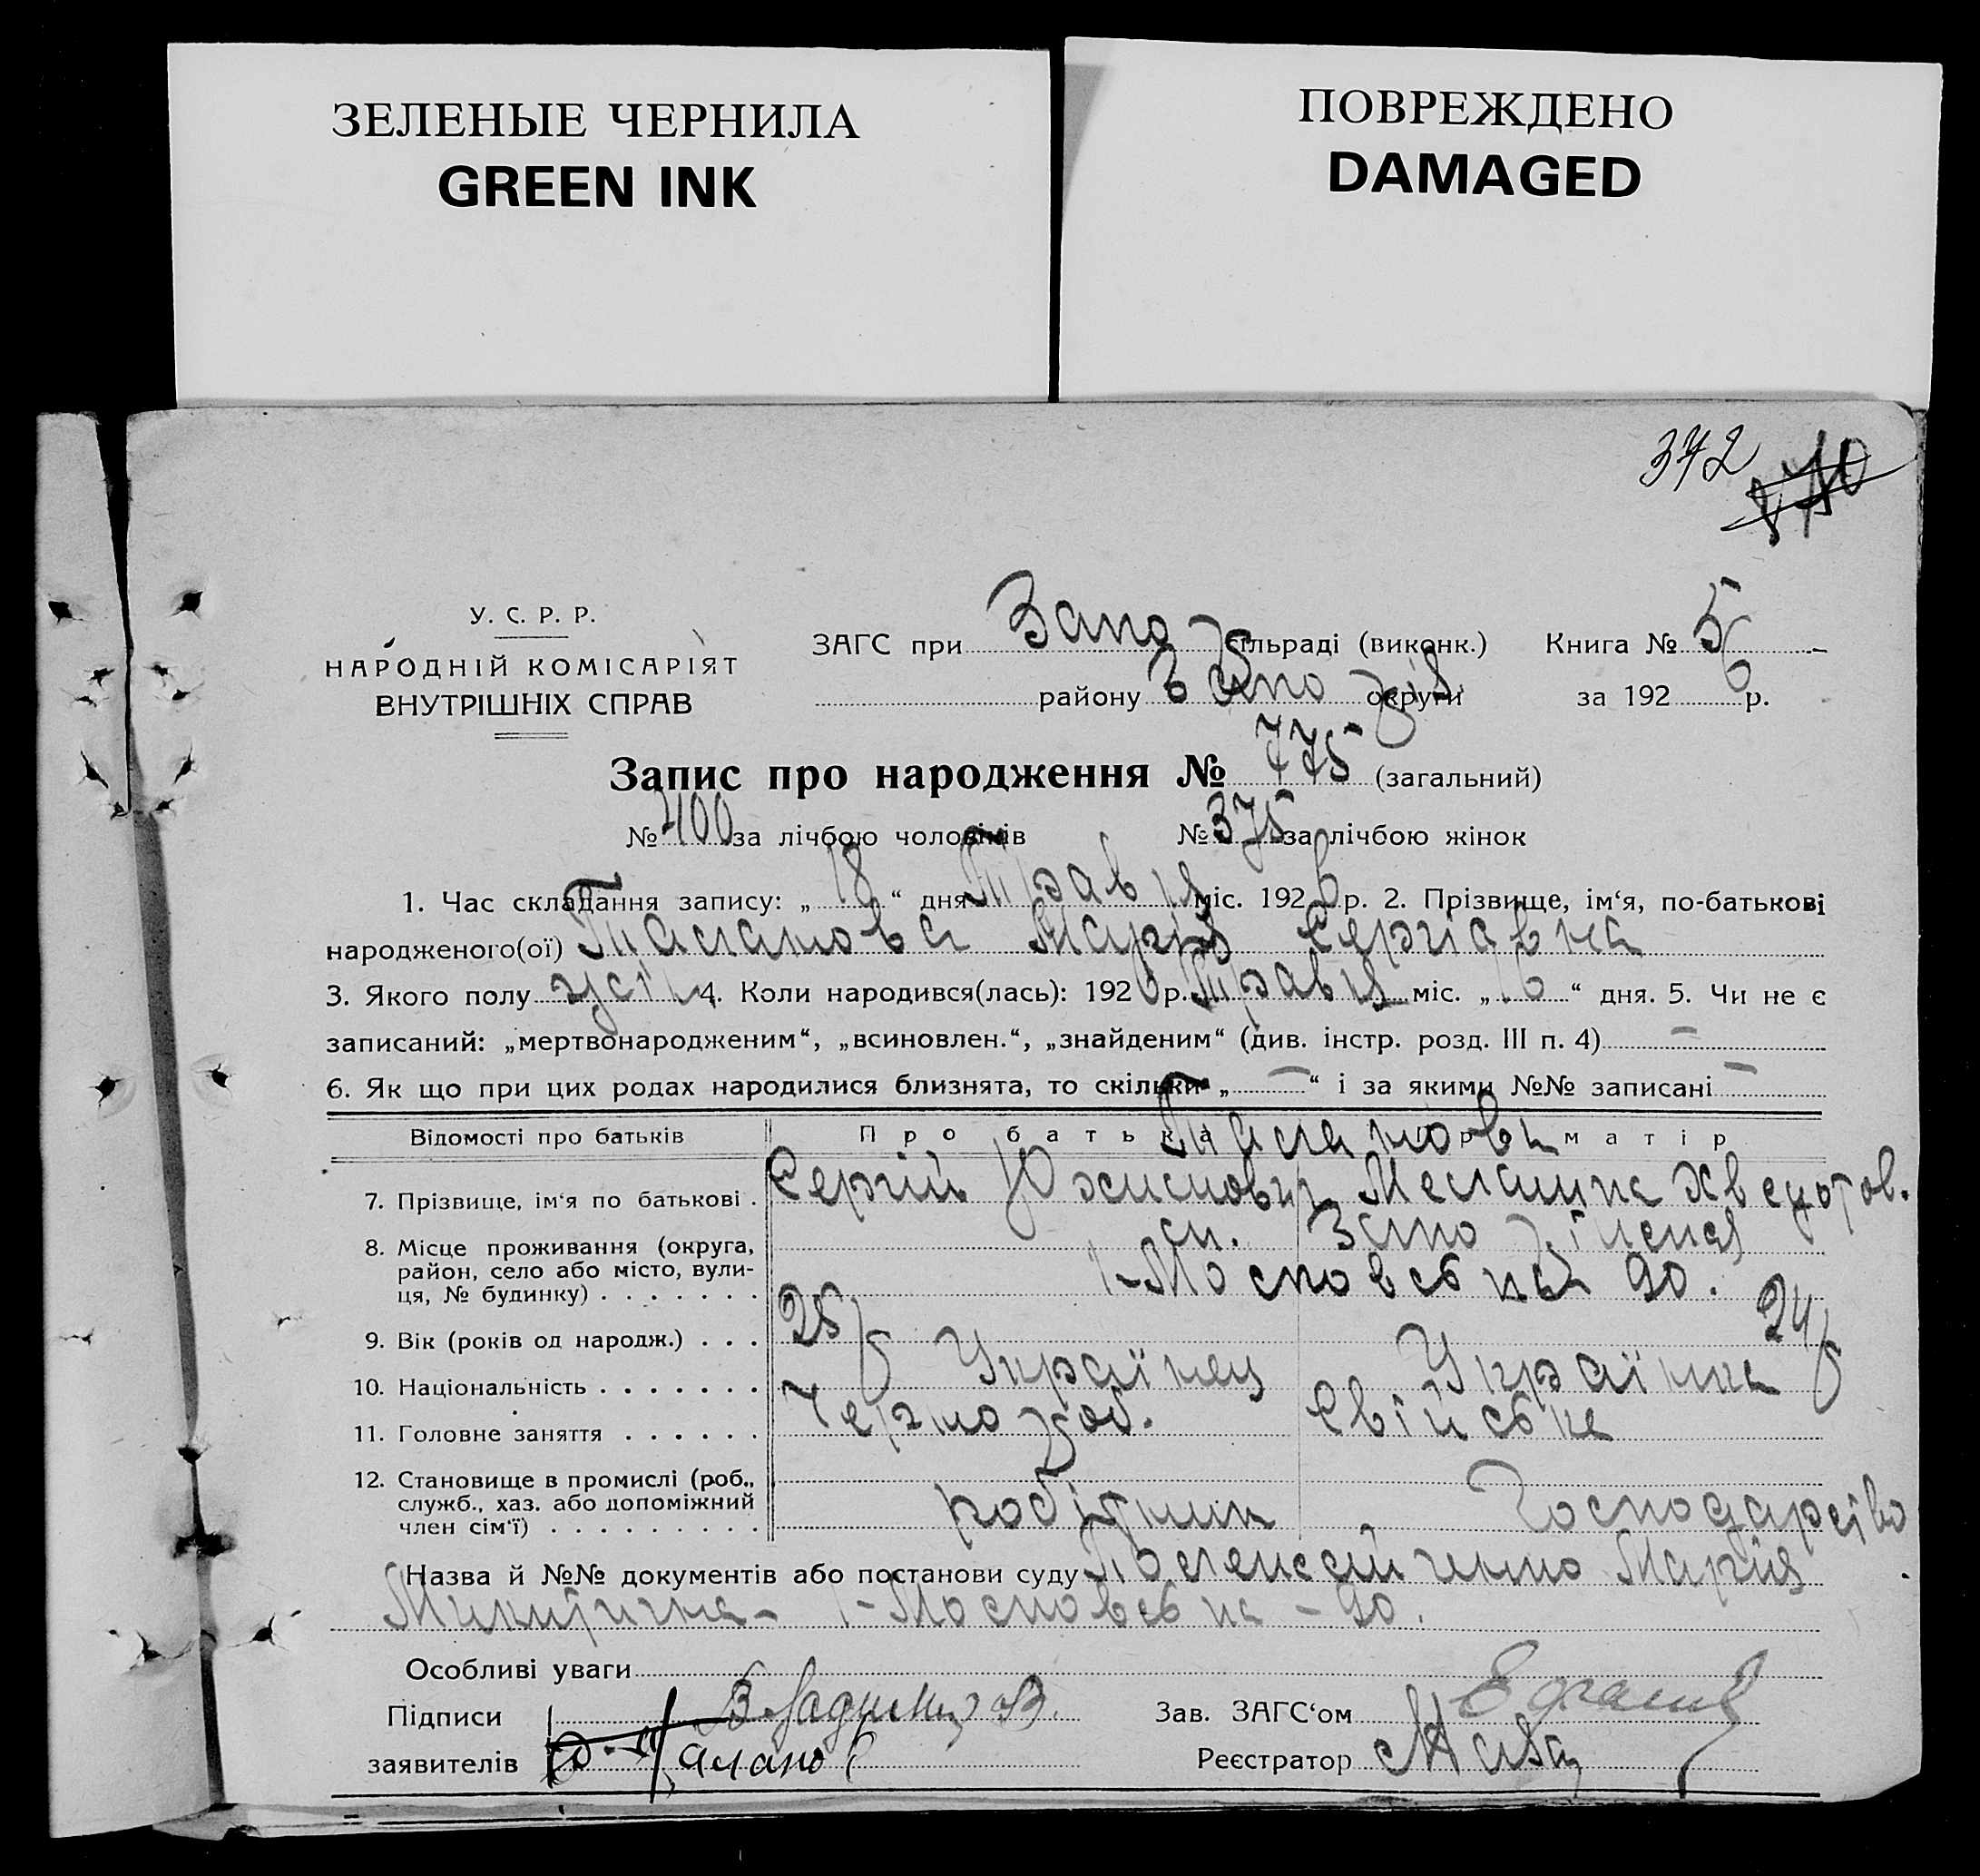 ЗЕЛЕНЫЕ ЧЕРНИЛА
GREEN INK
ПОВРЕЖДЕНО
DAMAGED
372
У. С. Р. Р.
НАРОДНІЙ КОМІСАРІЯТ
ВНУТРІШНІХ СПРАВ
ЗАГС при Запор сільраді (виконк.) Книга № 5
району Запоріз округи за 1926 р.
Запис про народження № 775 (загальний)
№ 400 за лічбою чоловіків № 375 за лічбою жінок
1. Час складання запису: „18“ дня Травня міс. 1926 р. 2. Прізвище, ім‘я, по-батькові
народженого(ої) Таланова Марія Сергіавна
3. Якого полу 4. Коли народився(лась): 1926 р. Травня міс. „16“ дня. 5. Чи не є
записаний: „мертвонародженим“, „всиновлен.“, „знайденим“ (див. інстр. розд. III п. 4) –
6. Як що при цих родах народилися близнята, то скільки „–“ і за якими №№ записані –
Відомості про батьків Про батька Про матір
Таланови
7. Прізвище, ім‘я по батькові . Сергій Меланка Хведотов.
8. Місце проживання (округа, район, село або місто, вулиця, № будинку) . . . . . . . ст. Запоріжжя
1-Московська 90.
9. Вік (років од народж.) . . . 25 24
10. Національність . . . . . . . Українец Українка
11. Головне заняття . . . . . . Чернороб. Свійське
12. Становище в промислі (роб., служб., хаз. або допоміжний член сім‘ї) . . . . . . . . . робітник Господарство
Назва й №№ документів або постанови суду Марія
Микитична - 1-Московська - 90.
Особливі уваги
Підписи Зав. ЗАГС‘ом
заявителів Реєстратор